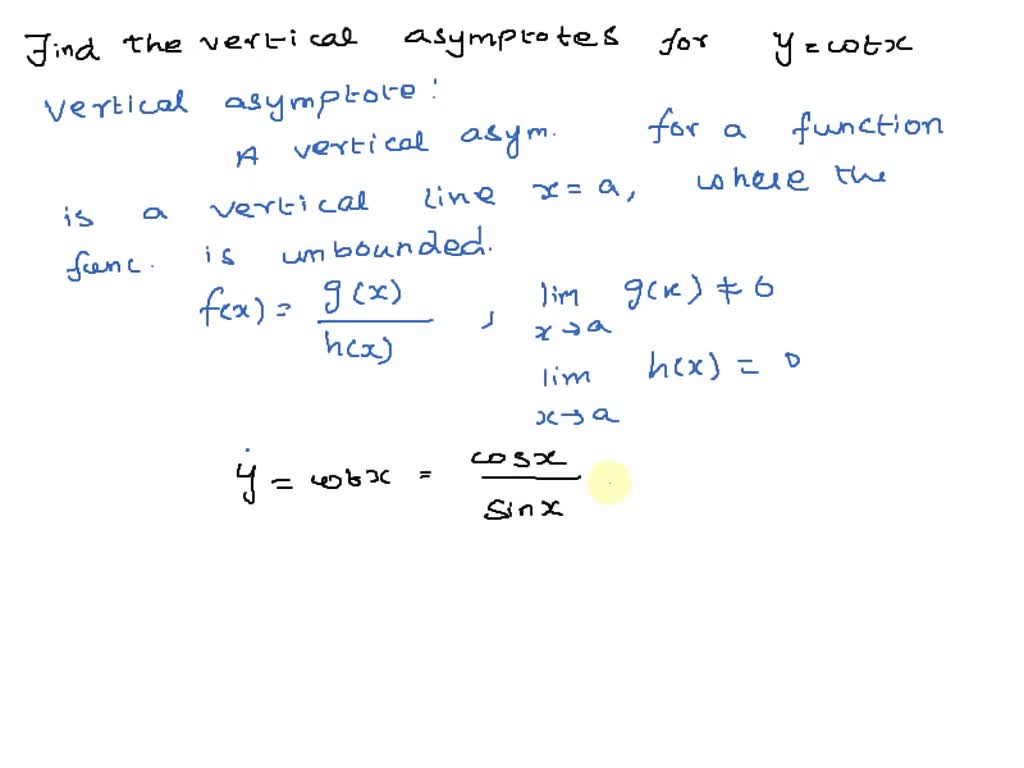 Find the vertical asymptotes for y = cotx
vertical asymptote:
A vertical asym. for a function
is a vertical line x = a, where the
func. is unbounded.
f(x) = g(x)/h(x) , lim x→a g(x) ≠ 0
lim x→a h(x) = 0
y = cotx = cosx/sinx